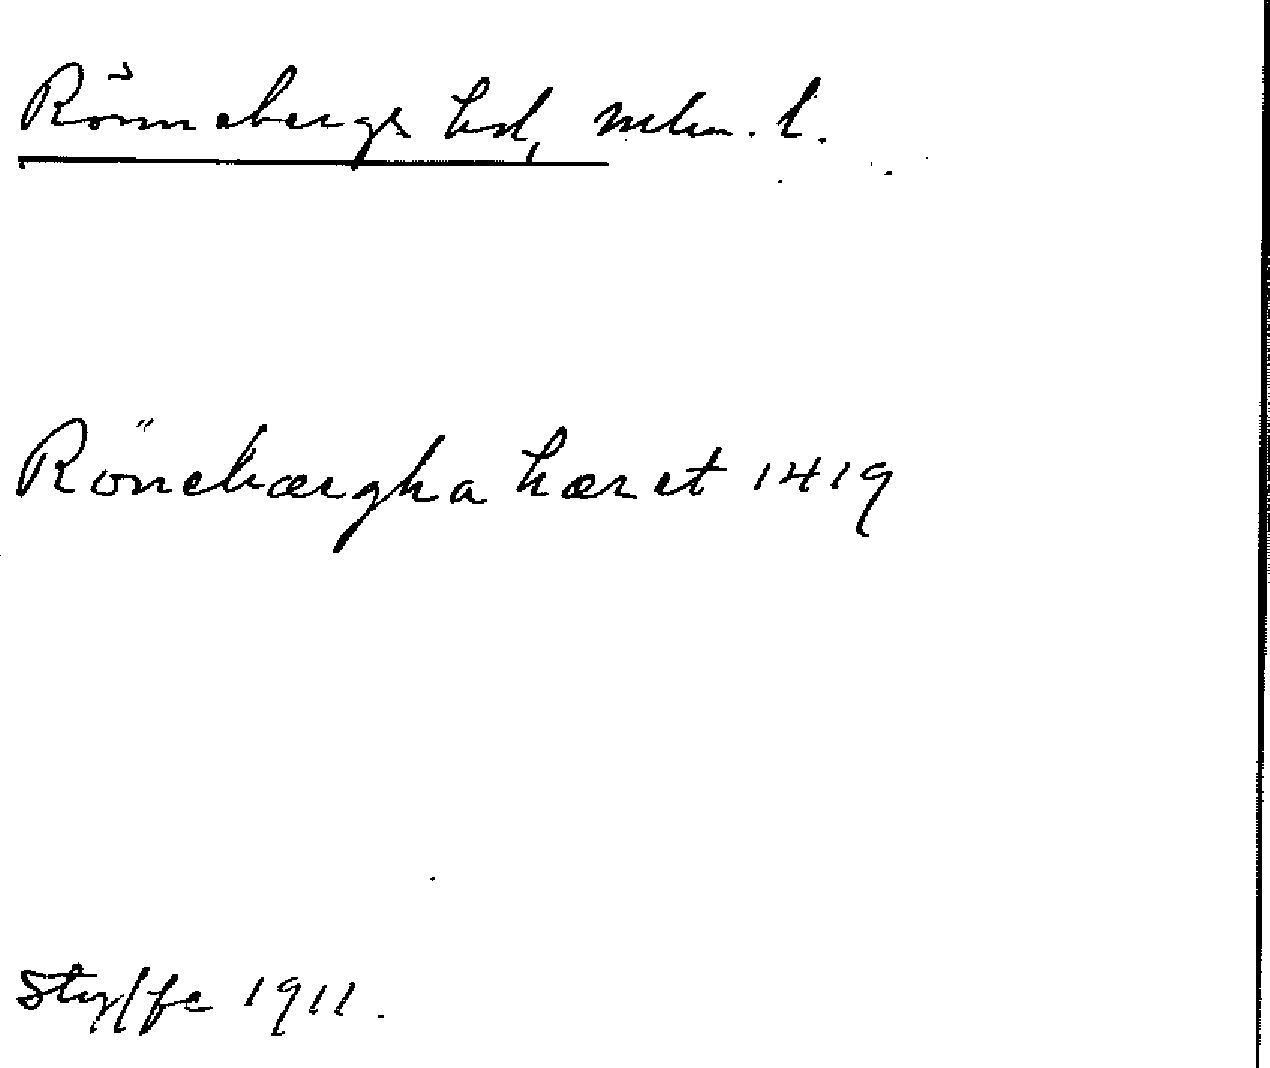 Rönnebergs hd, mlm. l.
Rönebærgha hæret 1419
Styffe 1911.